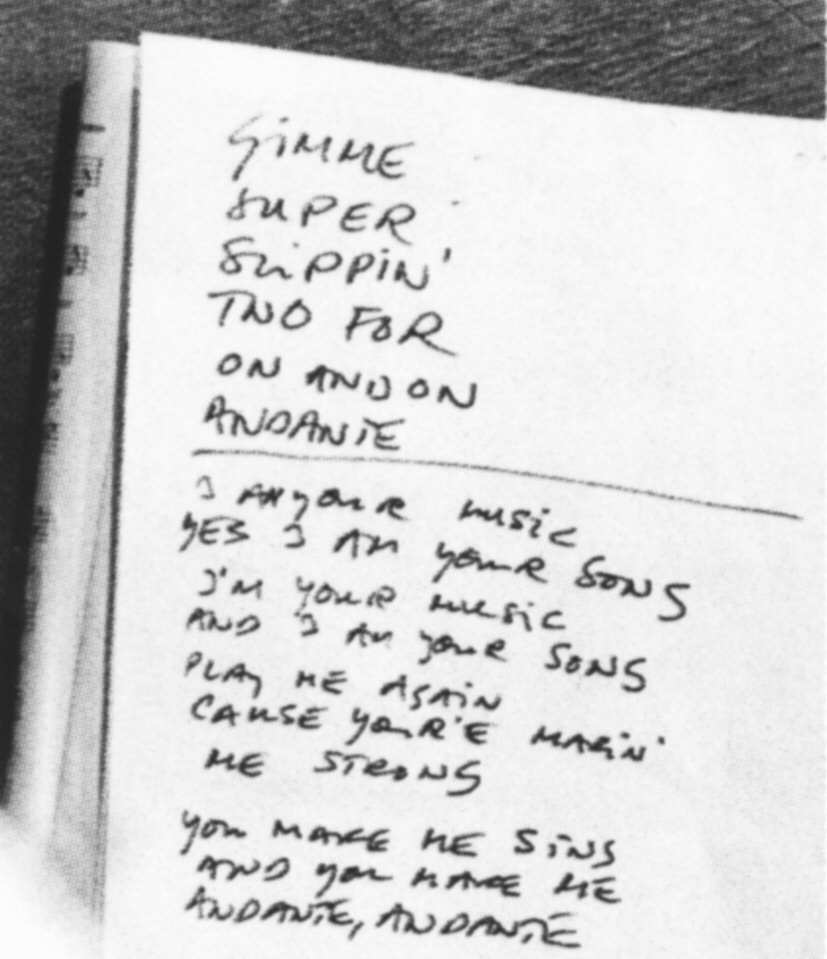 GIMME
SUPER
SLIPPIN'
TWO FOR
ON AND ON
ANDANTE
I AM YOUR MUSIC
YES I AM YOUR SONG
I'M YOUR MUSIC
AND I AM YOUR SONG
PLAY ME AGAIN
CAUSE YOUR'E MAKIN'
ME STRONG
YOU MAKE ME SING
AND YOU MAKE ME
ANDANTE, ANDANTE